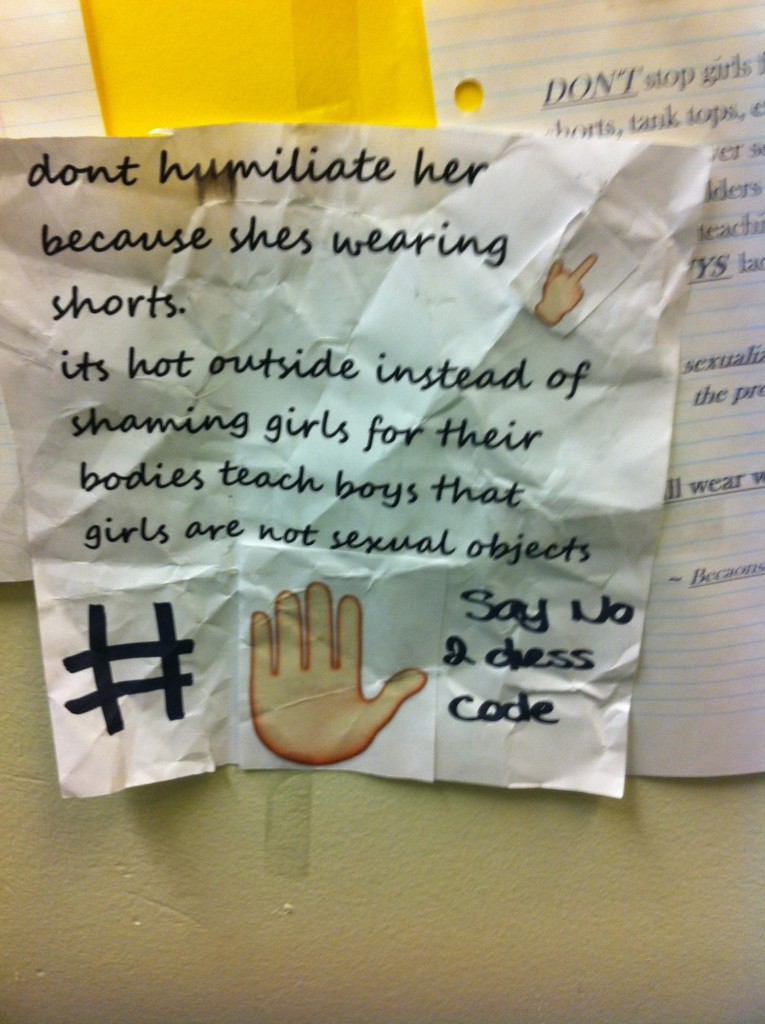 dont humiliate her
because shes wearing
shorts.
its hot outside instead of
shaming girls for their
bodies teach boys that
girls are not sexual objects
#
Say No
2 dress
code
DON'T stop girls
shorts, tank tops,
the
ll wear
~